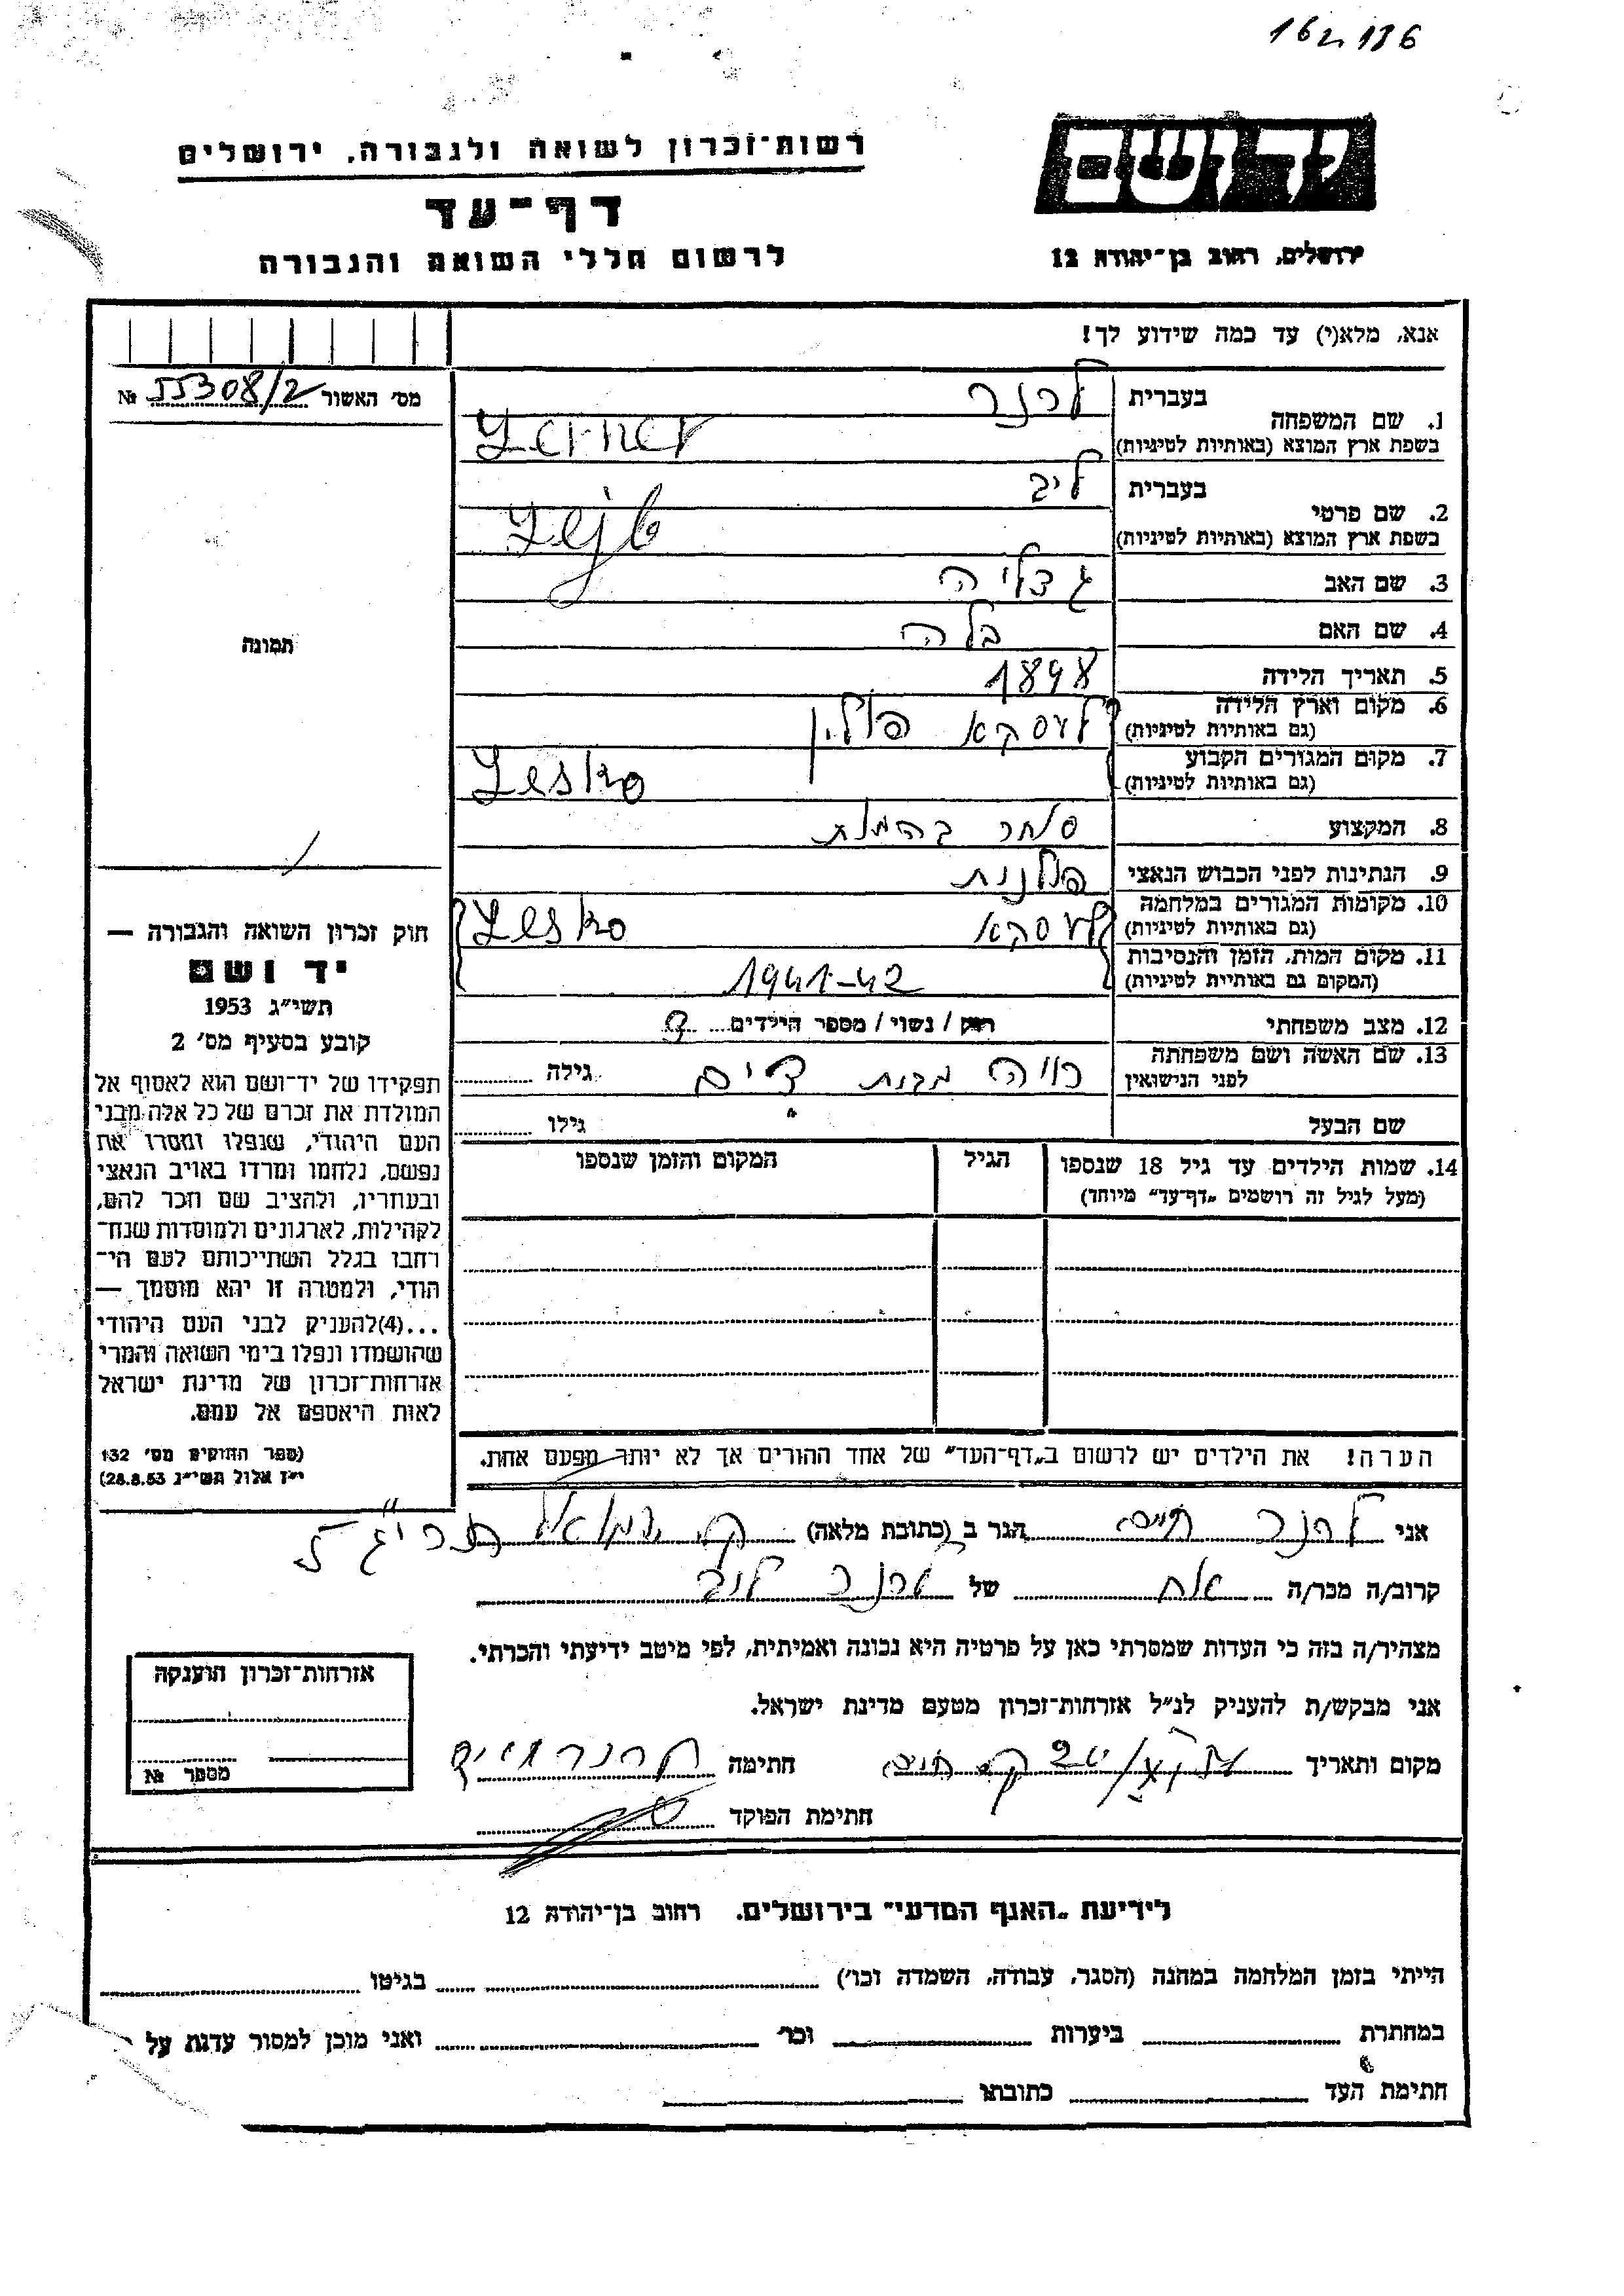 16 ת 136
רשות־זכרון לשואה ולגבורה, ירושלים
יד ושם
דף־עד
לרשום חללי השואה והגבורה
ירושלים, רחוב בן־יהודה 12
אנא, מלא(י) עד כמה שידוע לך!
מס׳ האשור 55308/2 №
תמונה
1. שם המשפחה
בעברית לרנר
בשפת ארץ המוצא (באותיות לטיניות) Lerner
2. שם פרטי
בעברית ליב
בשפת ארץ המוצא (באותיות לטיניות) Lejb
3. שם האב גדליה
4. שם האם בלה
5. תאריך הלידה 1898
6. מקום וארץ הלידה לעסקא פולין
(גם באותיות לטיניות)
7. מקום המגורים הקבוע Lesko
(גם באותיות לטיניות)
8. המקצוע סוחר בהמות
9. הנתינות לפני הכבוש הנאצי פולנית
10. מקומות המגורים במלחמה לעסקא Lesko
(גם באותיות לטיניות)
11. מקום המות, הזמן והנסיבות 1941-42
(המקום גם באותיות לטיניות)
12. מצב משפחתי רווק / נשוי / מספר הילדים
13. שם האשה ושם משפחתה מבית גילה
לפני הנישואין
שם הבעל גילו
14. שמות הילדים עד גיל 18 שנספו הגיל המקום והזמן שנספו
(מעל לגיל זה רושמים „דף־עד״ מיוחד)
הערה! את הילדים יש לרשום ב„דף־העד״ של אחד ההורים אך לא יותר מפעם אחת.
חוק זכרון השואה והגבורה —
יד ושם
תשי״ג 1953
קובע בסעיף מס׳ 2
תפקידו של יד־ושם הוא לאסוף אל
המולדת את זכרם של כל אלה מבני
העם היהודי, שנפלו ומסרו את
נפשם, נלחמו ומרדו באויב הנאצי
ובעוזריו, ולהציב שם וזכר להם,
לקהילות, לארגונים ולמוסדות שנח־
רחבו בגלל השתייכותם לעם הי־
הודי, ולמטרה זו יהא מוסמך —
...(4)להעניק לבני העם היהודי
שהושמדו ונפלו בימי השואה והמרי
אזרחות־זכרון של מדינת ישראל
לאות היאספם אל עמם.
(ספר החוקים מס׳ 132
י״ז אלול תשי״ג 28.8.53)
אני לרנר חיים הגר ב (כתובת מלאה) ק. שמואל תרי״ג 5
קרוב/ה מכר/ה אח של לרנר ליב
מצהיר/ה בזה כי העדות שמסרתי כאן על פרטיה היא נכונה ואמיתית, לפי מיטב ידיעתי והכרתי.
אני מבקש/ת להעניק לנ״ל אזרחות־זכרון מטעם מדינת ישראל.
מקום ותאריך חתימה
חתימת הפוקד
אזרחות־זכרון הוענקה
מספר №
לידיעת „האגף המדעי״ בירושלים. רחוב בן־יהודה 12
הייתי בזמן המלחמה במחנה (הסגר, עבודה, השמדה וכו׳) בגיטו
במחתרת ביערות וכו׳ ואני מוכן למסור עדות על
חתימת העד כתובתו